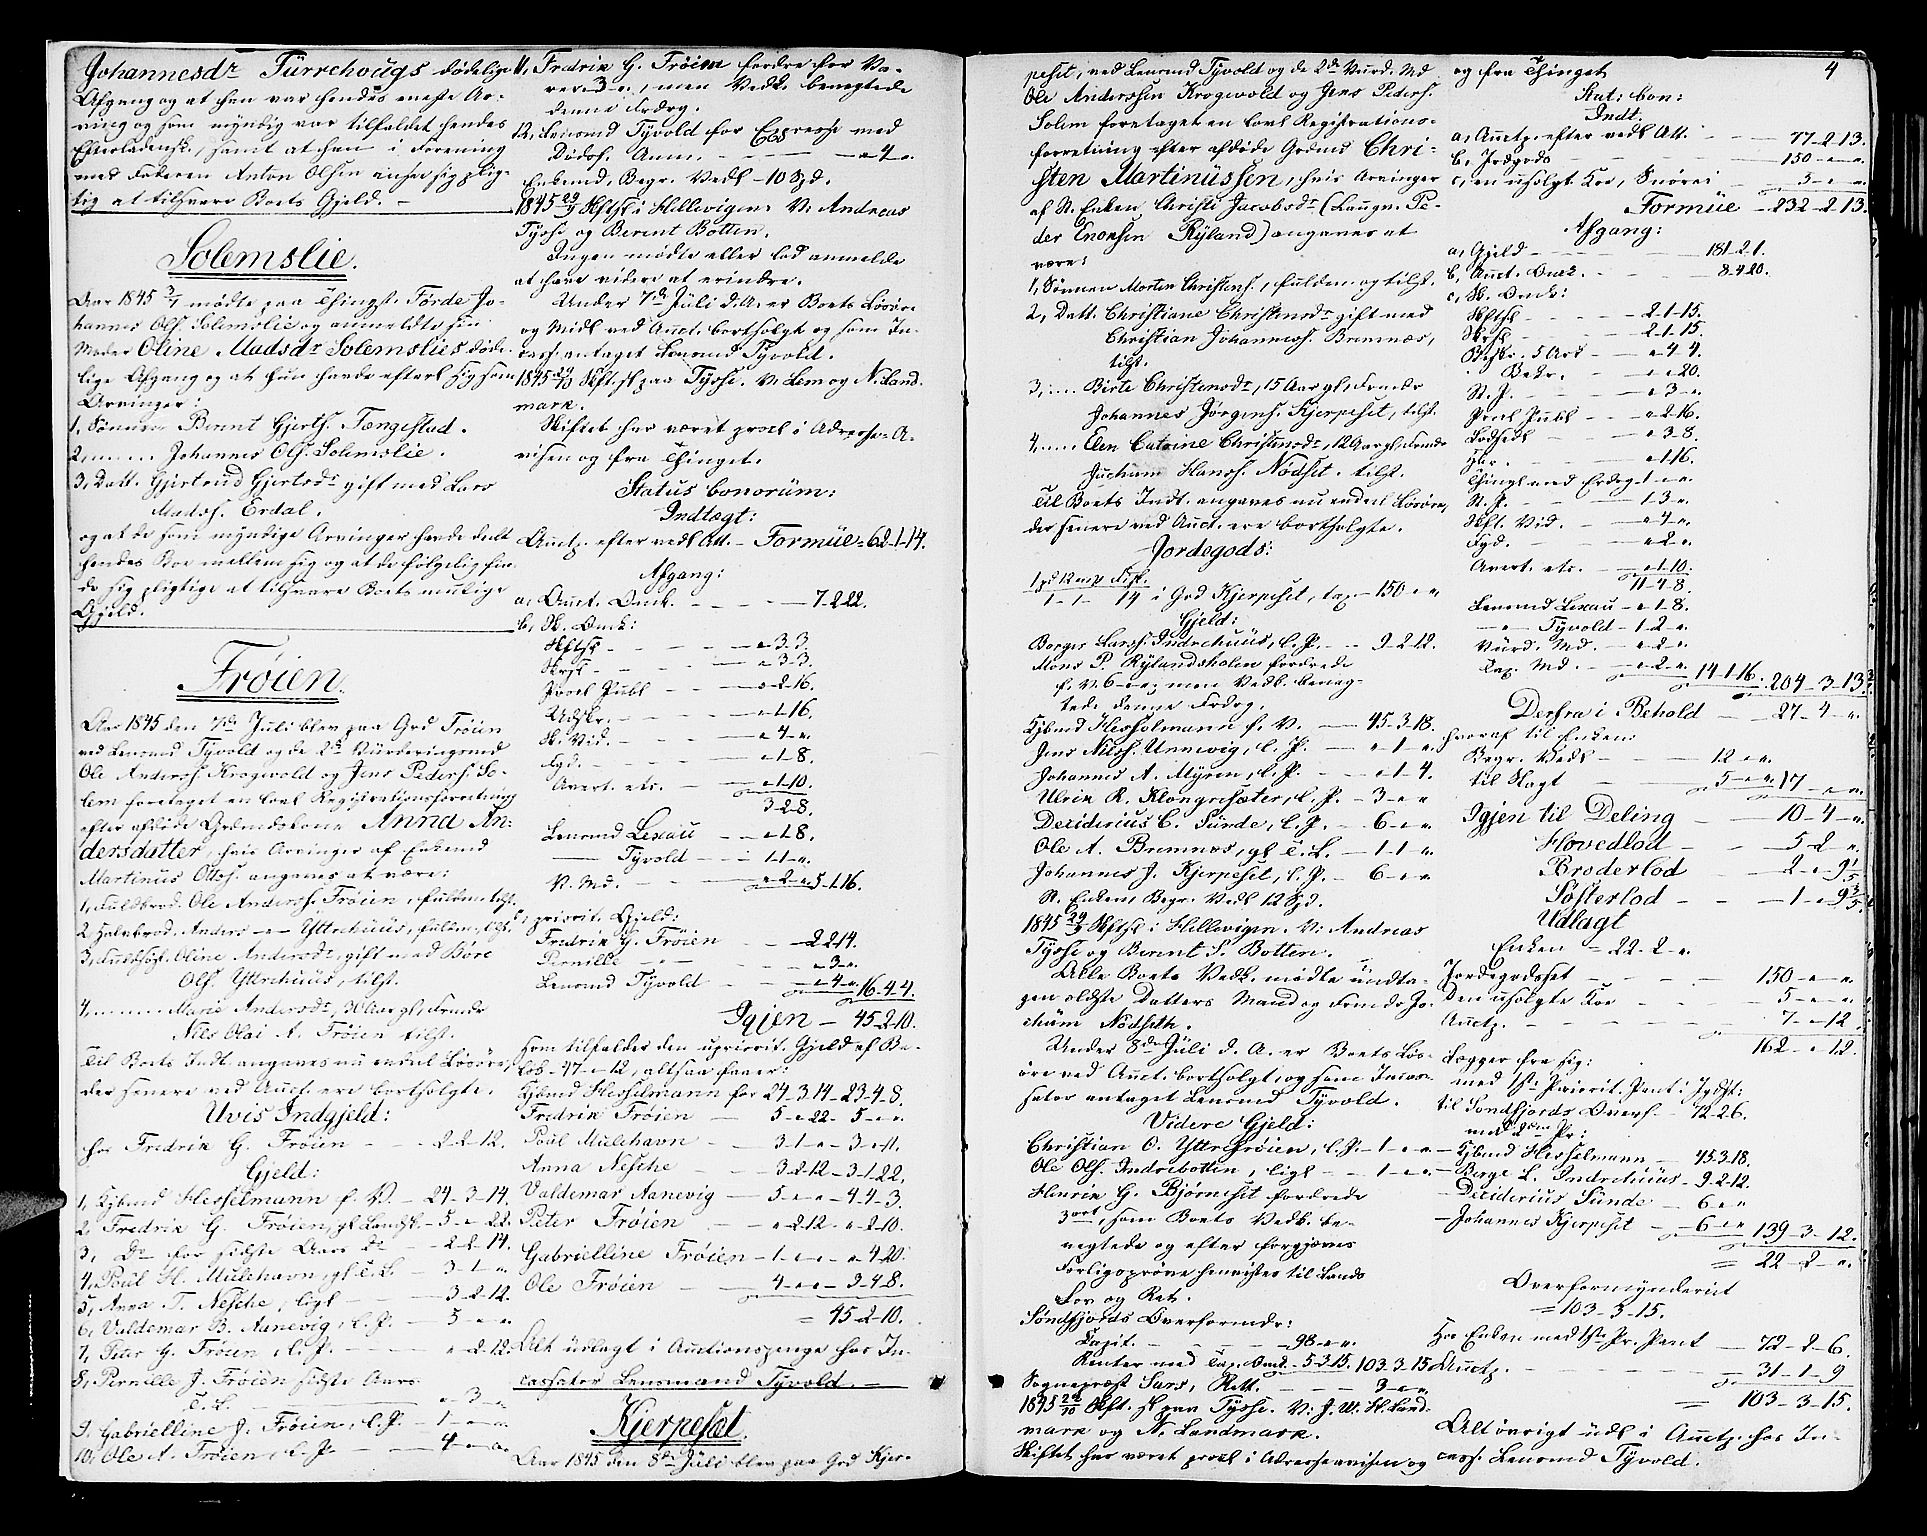 Johannesdr Türrehougs dødelige
Afgang og at han var hendes eneste Ar-
ving og som myndig var tilfaldet hendes
Efterladensk., samt at han i Forening
med Faderen Anton Olsen anser sig plig-
tig at tilsvare Boets Gjeld. –
Solemslie.
Aar 1845 3/7 mødte paa Thingst. Førde Jo-
hannes Ols. Solemslie og anmeldte sin
Moder Oline Madsdr Solemslies døde-
lige Afgang og at hun havde efterl. sig som
Arvinger:
1, Sønnen Bernt Gjerts. Tængestad.
2, ...... Johannes Ols. Solemslie.
3, Datt. Gjertrud Gjertsdr gift med Lars
Madss. Erdal.
og at de som myndige Arvinger havde deelt
hendes Boe mellem sig og at de følgelig fin-
de sig pligtige at tilsvare Boets mulige
Gjeld.
Frøien.
Aar 1845 den 7de Juli blev paa Grd Frøien
ved Lensmd Tyvold og de 2de Vurderingsmd
Ole Anderss. Krogevold og Jens Peders. So-
lem foretaget en lovl Registrationsforretning
efter afdøde Grdmandskone Anna An-
dersdatter, hvis Arvinger af Enkemd
Martinus Ottos. angaves at være:
1, Fuldbrod. Ole Anderss. Frøien, fuldm. tilst.
2, Halvbrod. Anders – – Yttrehuus, fuldm. tilst.
3, Fuldsøst. Oline Andersdr, gift med Børe
Ols. Yttrehuus, tilst.
4, ........ Marie Andersdr, 30 Aar gl, Formdr
Nils Olai A. Frøien tilst.
Til Boets Indt. angaves nu endeel Løsøre,
der senere ved Auct. ere bortsolgte.
Uvis Indgjeld:
hos Fredrik G. Frøien – – 2-2-12.
Gjeld:
1, Kjbmd Hesselmann f. V. – 24-3-14.
2, Fredrik G. Frøien, gl Landsk. – 5-"-22.
3, Do for sidste Aars do – 2-2-14.
4, Poul H. Mulehavn, gl T. L. – 3-1-"
5, Anna T. Nesche, ligl – – 3-2-12.
6, Valdemar B. Aanevig, l. P. – 5-"-"
7, Peter G. Frøien l. P. – – "-2-12.
8, Pernille J. Frøien sidste Aars
T. L. – – "-3-"
9, Gabrielline J. Frøien, l. P. – 1-"-"
10, Ole A. Frøien, l. P. – 4-"-"
11, Fredrik G. Frøien fordrer for Va-
rer 3-"-", men Vedk. benegtede
denne Fordrg.
12, Lensmd Tyvold for Expresse med
Dødsf. Anm. – – "-4-"
Enkemd. Begr. Vedl – 10 Spd.
1845 29/9 Skftsl i Hillevigen. V: Andreas
Tysse og Berent Botten.
Ingen mødte eller lod anmelde
at have videre at erindre.
Under 7de Juli d. A. er Boets Løsøre
og Midl ved Auct. bortsolgt og som In-
cass. antaget Lensmd Tyvold.
1845 29/10 Skft. sl. paa Tysse. V: Lem og N. Land-
mark.
Skiftet har været procl i Adresse-A-
visen og fra Thinget.
Status bonorum:
Indtægt:
Auctp. efter vedl Att. – Formue = 62-1-14.
Afgang:
a, Auct. Omk. – – – 7-2-22.
b, Sk. Omk:
Skftsk – – – "-3-3.
Skrsk – – – "-3-3.
Procl Publ – – "-2-16.
Udskr. – – "-1-16.
Sk. Vid. – – "-4-"
Fgd. – – "-1-8.
Avert. etc. – "-1-10.
3-2-8.
Lensmd Lexau – – "-1-8.
– Tyvold – – 1-1-".
V. Md. – – "-2-" 5-1-16.
c, priorit. Gjeld:
Fredrik G. Frøien – – 2-2-14.
Pernille – " – – – "-3-".
Lensmd Tyvold – – "-4-" 16-4-4.
Igjen – 45-2-10.
som tilfalder den upriorit. Gjeld af Be-
løb – 47-"-12, altsaa faaer:
Kjbmd Hesselmann for 24-3-14-23-4-8.
Fredrik Frøien – 5-"-22- 5-"-".
Poul Mulehavn – 3-1-"-3-"-11.
Anna Nesche – – 3-2-12-3-1-22.
Valdemar Aanevig – 5-"-"-4-4-3.
Peter Frøien – – "-2-12-"-2-10.
Gabrielline Frøien – 1-"-"-"-4-20.
Ole Frøien – 4-"-"-3-4-8.
= 45-2-10.
Alt udlagt i Auctionspenge hos In-
cassator Lensmand Tyvold. –
Kjerpeset.
Aar 1845 den 8de Juli blev paa Grd Kjer-
peset, ved Lensmd Tyvold og de 2de Vurd. Md
Ole Anderssen Krogevold og Jens Peders.
Solem foretaget en lovl Registrations-
forretning efter afdøde Grdmd Chri-
sten Martinussen, hvis Arvinger
af St. Enken Christi Jacobsdr (Laugv. Pe-
der Enoksen Ryland) angaves at
være:
1, Sønnen Morten Christens., fuldm. og tilst.
2, Datt. Christiane Christensdr gift med
Christian Johanness. Bremnes,
tilst.
3, .... Birte Christensdr, 15 Aar gl, Formdr
Johannes Jørgens. Kjerpeset, tilst.
4, ..... Elen Catrine Christensdr, 12 Aar gl, Formdr
Jochum Hanss. Nødset. tilst.
Til Boets Indt. angaves nu endeel Løsøre,
der senere ved Auct. ere bortsolgte.
Jordegods:
1 pd 12 mrk Fisk.
1-1- 14 i Grd Kjerpeset, tax. – 150-"-"
Gjeld:
Børger Larss. Indrehuus, l. P. – – 9-2-12.
Mons P. Rylandsholen fordrede
f. V. 6-"-"; men Vedk. beneg-
tede denne Fordrg.
Kjbmd Hesselmann f. V. – 45-3-18.
Jens Nilss. Unnevig, l. P. – "-1-".
Johannes A. Myren, l. P. – – "-1-4.
Ulrik R. Klongresæter, l. P. – 3-"-"
Deziderius C. Sunde, l. P. – 6-"-".
Ole A. Bremnes, gl T. L. – 1-1-".
Johannes J. Kjerpeset, l. P. – 6-"-"
St. Enkens Begr. Vedl 12 Spd.
1845 29/9 Skftsl i Hillevigen. V: Andreas
Tysse og Berent S. Botten.
Alle Boets Vedk. mødte undta-
gen ældste Datters Mand og Formdr Jo-
chum Nødseth.
Under 8de Juli d. A. er Boets Løs-
øre ved Auct. bortsolgt, og som Incas-
sator antaget Lensmd Tyvold.
Videre Gjeld:
Christian O. Yttrefrøien, l. P. – 1-"-"
Ole Ols. Indrebotten, ligl – 1-"-".
Henrik G. Bjørneset fordrede
3 ort, som Boets Vedk. be-
negtede og efter forgjæves
Forligsprøve henvistes til Lands
Lov og Ret.
Søndfjords Overformdr:
Capit. – – 98-"-".
Renter med Tax. Omk. – 5-3-15. 103-3-15.
Sognepræst Sars, Rett. – – 3-"-"
1845 29/10 Skft. sl paa Tysse. V: J. W. H. Land-
mark og N. Landmark.
Skiftet har været procl i Adresseavisen og
og fra Thinget.
4
Stat: bon:
Indt.
a, Auctp. efter vedl Att. – – 77-2-13.
b, Jordgods – – 150-"-".
c, en usolgt Koe, Snørei – 5-"-"
Formue – 232-2-13.
Afgang:
a, Gjeld – – – 181-2-1.
b, Auct. Omk. – – 8-4-20.
c, Sk. Omk:
Skftsk – – – 2-1-15.
Skrsk – – – 2-1-15.
Beskr. 5 Ark – – "-4-4.
Bekr. – – "-"-20.
St. P. – – "-3-".
Procl Publ – – "-2-16.
Lodsedl – – "-3-8.
Udskr. – – "-1-16.
Thingl. med Erdrg. 1-"-"
St. P. – – 1-3-".
Skft. Vid. – – "-4-".
Fgd. – – "-2-".
Avert. etc. – – "-1-10.
11-4-8.
Lensmd Lexau – "-1-8.
– " – Tyvold – 1-2-".
Vurd. Md. – "-2-".
Tax. Md. – – "-2-". 14-1-16. 204-3-13.
Derfra i Behold – – 27-4-".
hvoraf til Enken:
Begr. Vedl – – 12-"-".
til Slagt – – 5-"-" 17-"-".
Igjen til Deling – – 10-4-".
Hovedlod – – 5-2-"
Broderlod – – 2-"-9 1/5
Søsterlod – – 1-"-9 3/5.
Udlagt
Enken = 22-2-".
Jordegodset – – 150-"-".
Den usolgte Koe – – 5-"-".
Auctp. – – 7-"-12.
162-"-12.
Lægger fra sig:
med 1ste Priorit. Pant i Jgdst:
til Søndfjords Overf. – 72-2-6.
med 2den Pr:
– Kjbmd Hesselmann – 45-3-18.
– Børge L. Indrehuus – 9-2-12.
– Deziderius Sunde – 6-"-"
– Johannes Kjerpeset – – 6-"-" 139-3-12.
= 22-2-".
Overformynderiet
= 103-3-15.
Hos Enken med 1ste Pr. Pant – 72-2-6.
Auctp. – – 31-1-9
= 103-3-15.
Alt øvrigt udl i Auctp. hos In-
cass. Lensmd Tyvold.